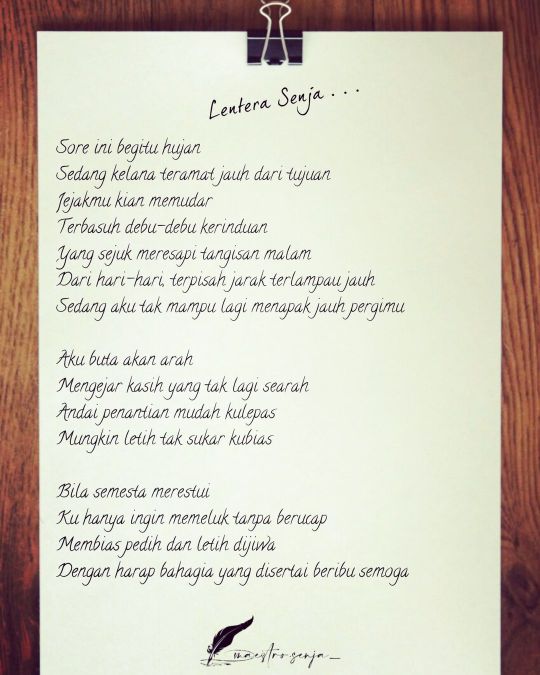 Lentera Senja . . .
Sore ini begitu hujan
Sedang kelana teramat jauh dari tujuan
Jejakmu kian memudar
Terbasuh debu-debu kerinduan
Yang sejuk meresapi tangisan malam
Dari hari-hari, terpisah jarak terlampau jauh
Sedang aku tak mampu lagi menapak jauh pergimu
Aku buta akan arah
Mengejar kasih yang tak lagi searah
Andai penantian mudah kulepas
Mungkin letih tak sukar kubias
Bila semesta merestui
Ku hanya ingin memeluk tanpa berucap
Membias pedih dan letih dijiwa
Dengan harap bahagia yang disertai beribu semoga
maestro.senja_